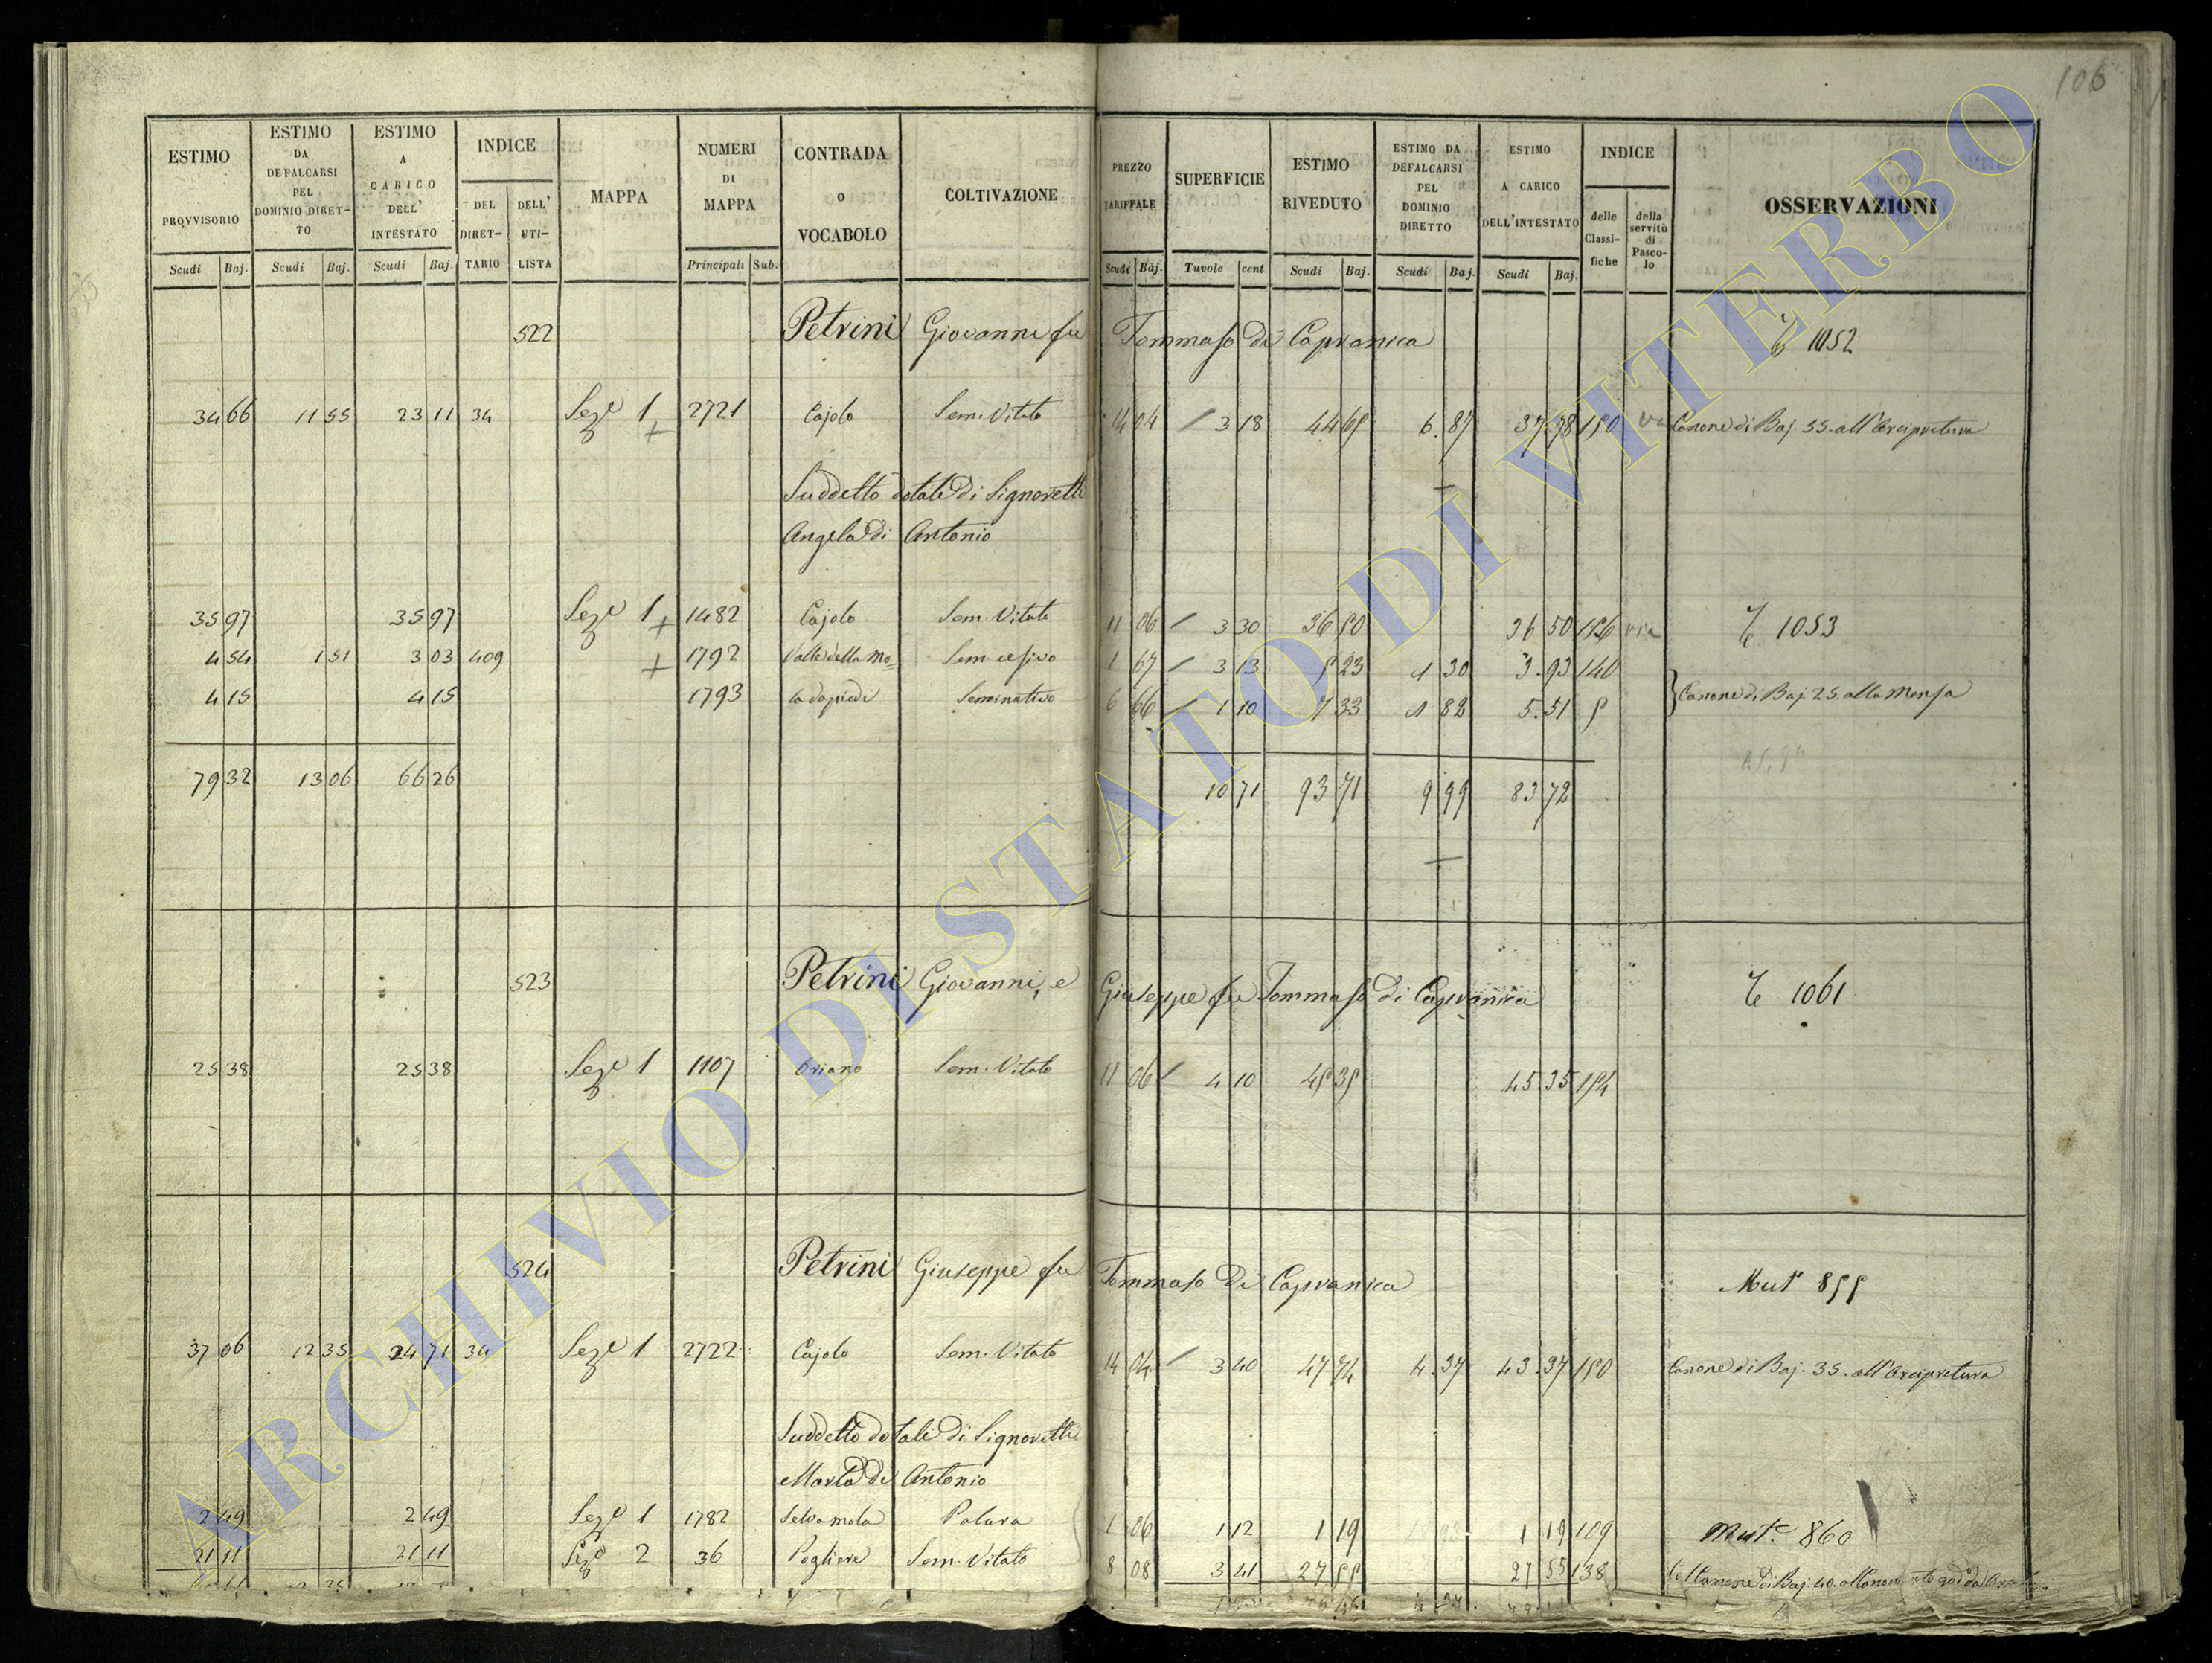 106
ESTIMO PROVVISORIO Scudi Baj.
ESTIMO DA DEFALCARSI PEL DOMINIO DIRET-TO Scudi Baj.
ESTIMO A CARICO DELL' INTESTATO Scudi Baj.
INDICE DEL DIRET-TARIO DELL' UTI-LISTA
MAPPA
NUMERI DI MAPPA Principali Sub.
CONTRADA o VOCABOLO
COLTIVAZIONE
PREZZO TARIFFALE Scudi Baj.
SUPERFICIE Tavole cent.
ESTIMO RIVEDUTO Scudi Baj.
ESTIMO DA DEFALCARSI PEL DOMINIO DIRETTO Scudi Baj.
ESTIMO A CARICO DELL'INTESTATO Scudi Baj.
INDICE delle Classi-fiche della servitù di Pasco-lo
OSSERVAZIONI
522 Petrini Giovanni fu Tommaso di Capranica 1052
34 66 11 55 23 11 34 Sez.e 1 + 2721 Cajolo Sem. Vitato 14 04 3 18 44 65 6. 87 37 78 150 Canone di Baj. 35. all'Arcipretura
Suddetto dotali di Signoretti
Angela di Antonio
35 97 35 97 Sez.e 1 + 1482 Cajolo Sem. Vitato 11 06 3 30 36 50 36 50 156 via 1053
4 54 1 51 3 03 409 + 1792 Valle della Mo= Sem. 1 67 3 13 5 23 1 30 3. 93 140
4 15 4 15 1793 Seminativo 6 66 1 10 7 33 1 82 5. 51 5 Canone di Baj 25. alla Mensa
79 32 13 06 66 26 10 71 93 71 9 99 83 72
523 Petrini Giovanni, e Giuseppe fu Tommaso di Capranica 1061
25 38 25 38 Sez.e 1 1107 Oriano Sem. Vitato 11 06 4 10 45 35 45 35 154
524 Petrini Giuseppe fu Tommaso di Capranica Mut.e 855
37 06 12 35 24 71 34 Sez.e 1 2722 Cajolo Sem. Vitato 14 04 3 40 47 74 4. 37 43. 37 150 Canone di Baj. 35. all'Arcipretura
Suddetto dotali di Signoretti
Marta di Antonio
2 49 2 49 Sez.e 1 1782 Selvamola Palara 1 06 1 12 1 19 1 19 109 Mut.e 860
21 11 21 11 Sez.e 2 36 Pogliere Sem. Vitato 8 08 3 41 27 55 27 55 138 Canone di Baj. 40.
ARCHIVIO DI STATO DI VITERBO